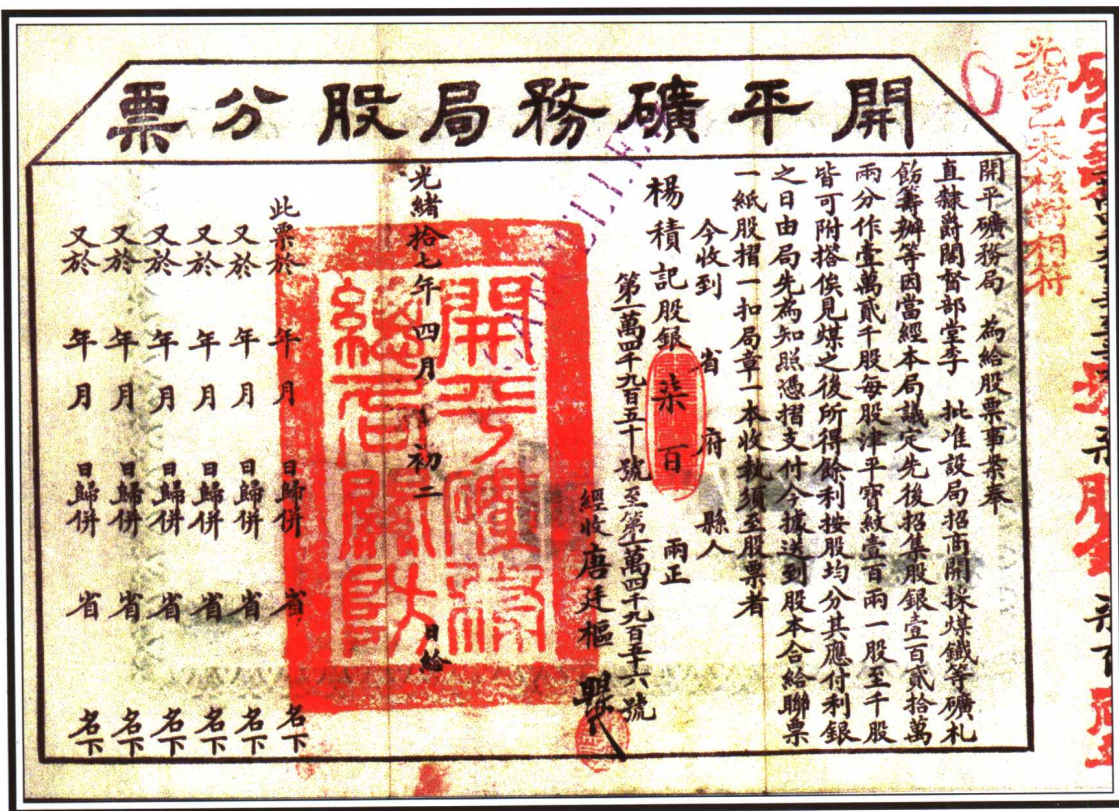 開平礦務局股分票
光緒乙未核對相符
開平礦務局 為給股票事案奉
直隸爵閣督部堂李 批准設局招商開採煤鐵等礦札
飭籌辦等因當經本局議定先後招集股銀壹百貳拾萬
兩分作壹萬貳千股每股津平寶紋壹百兩一股至千股
皆可附搭俟見煤之後所得餘利按股均分其應付利銀
之日由局先為知照憑摺支付今據送到股本合給聯票
一紙股摺一扣局章一本收執須至股票者
今收到 省 府 縣人
楊積記股銀 柒百 兩正
第一萬四千九百五十號至第一萬四千九百五十六號
經收 唐廷樞
光緒拾七年 四月 初二 日給
開平礦務總局關防
此票於 年 月 日歸併 省 名下
又於 年 月 日歸併 省 名下
又於 年 月 日歸併 省 名下
又於 年 月 日歸併 省 名下
又於 年 月 日歸併 省 名下
又於 年 月 日歸併 省 名下